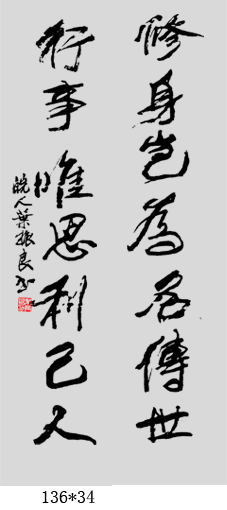 修身岂為名傳世
行事唯思利己人
皖人葉振良书
136*34